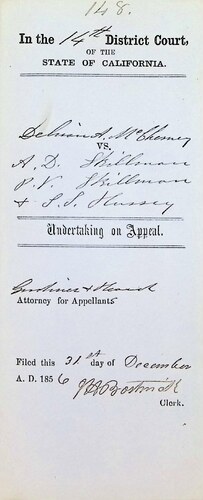 148.
In the 14th District Court,
OF THE
STATE OF CALIFORNIA.
A. McChesney
VS.
A. D. Skillman
P. V. Skillman
& S. S. Hussey
Undertaking on Appeal.
Gardiner &
Attorney for Appellants
Filed this 31st day of December
A. D. 1856
Clerk.